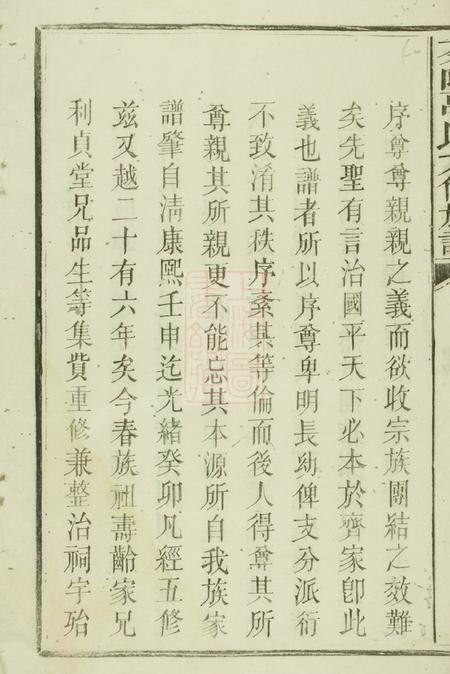 序尊尊親親之義而欲收宗族團結之效難
矣先聖有言治國平天下必本於齊家卽此
義也譜者所以序尊卑明長幼俾支分派衍
不致淆其秩序紊其等倫而後人得尊其所
尊親其所親更不能忘其本源所自我族家
譜肇自淸康熙壬申迄光緒癸卯凡經五修
兹又越二十有六年矣今春族祖壽齡家兄
利貞堂兄品生等集貲重修兼整治祠宇殆